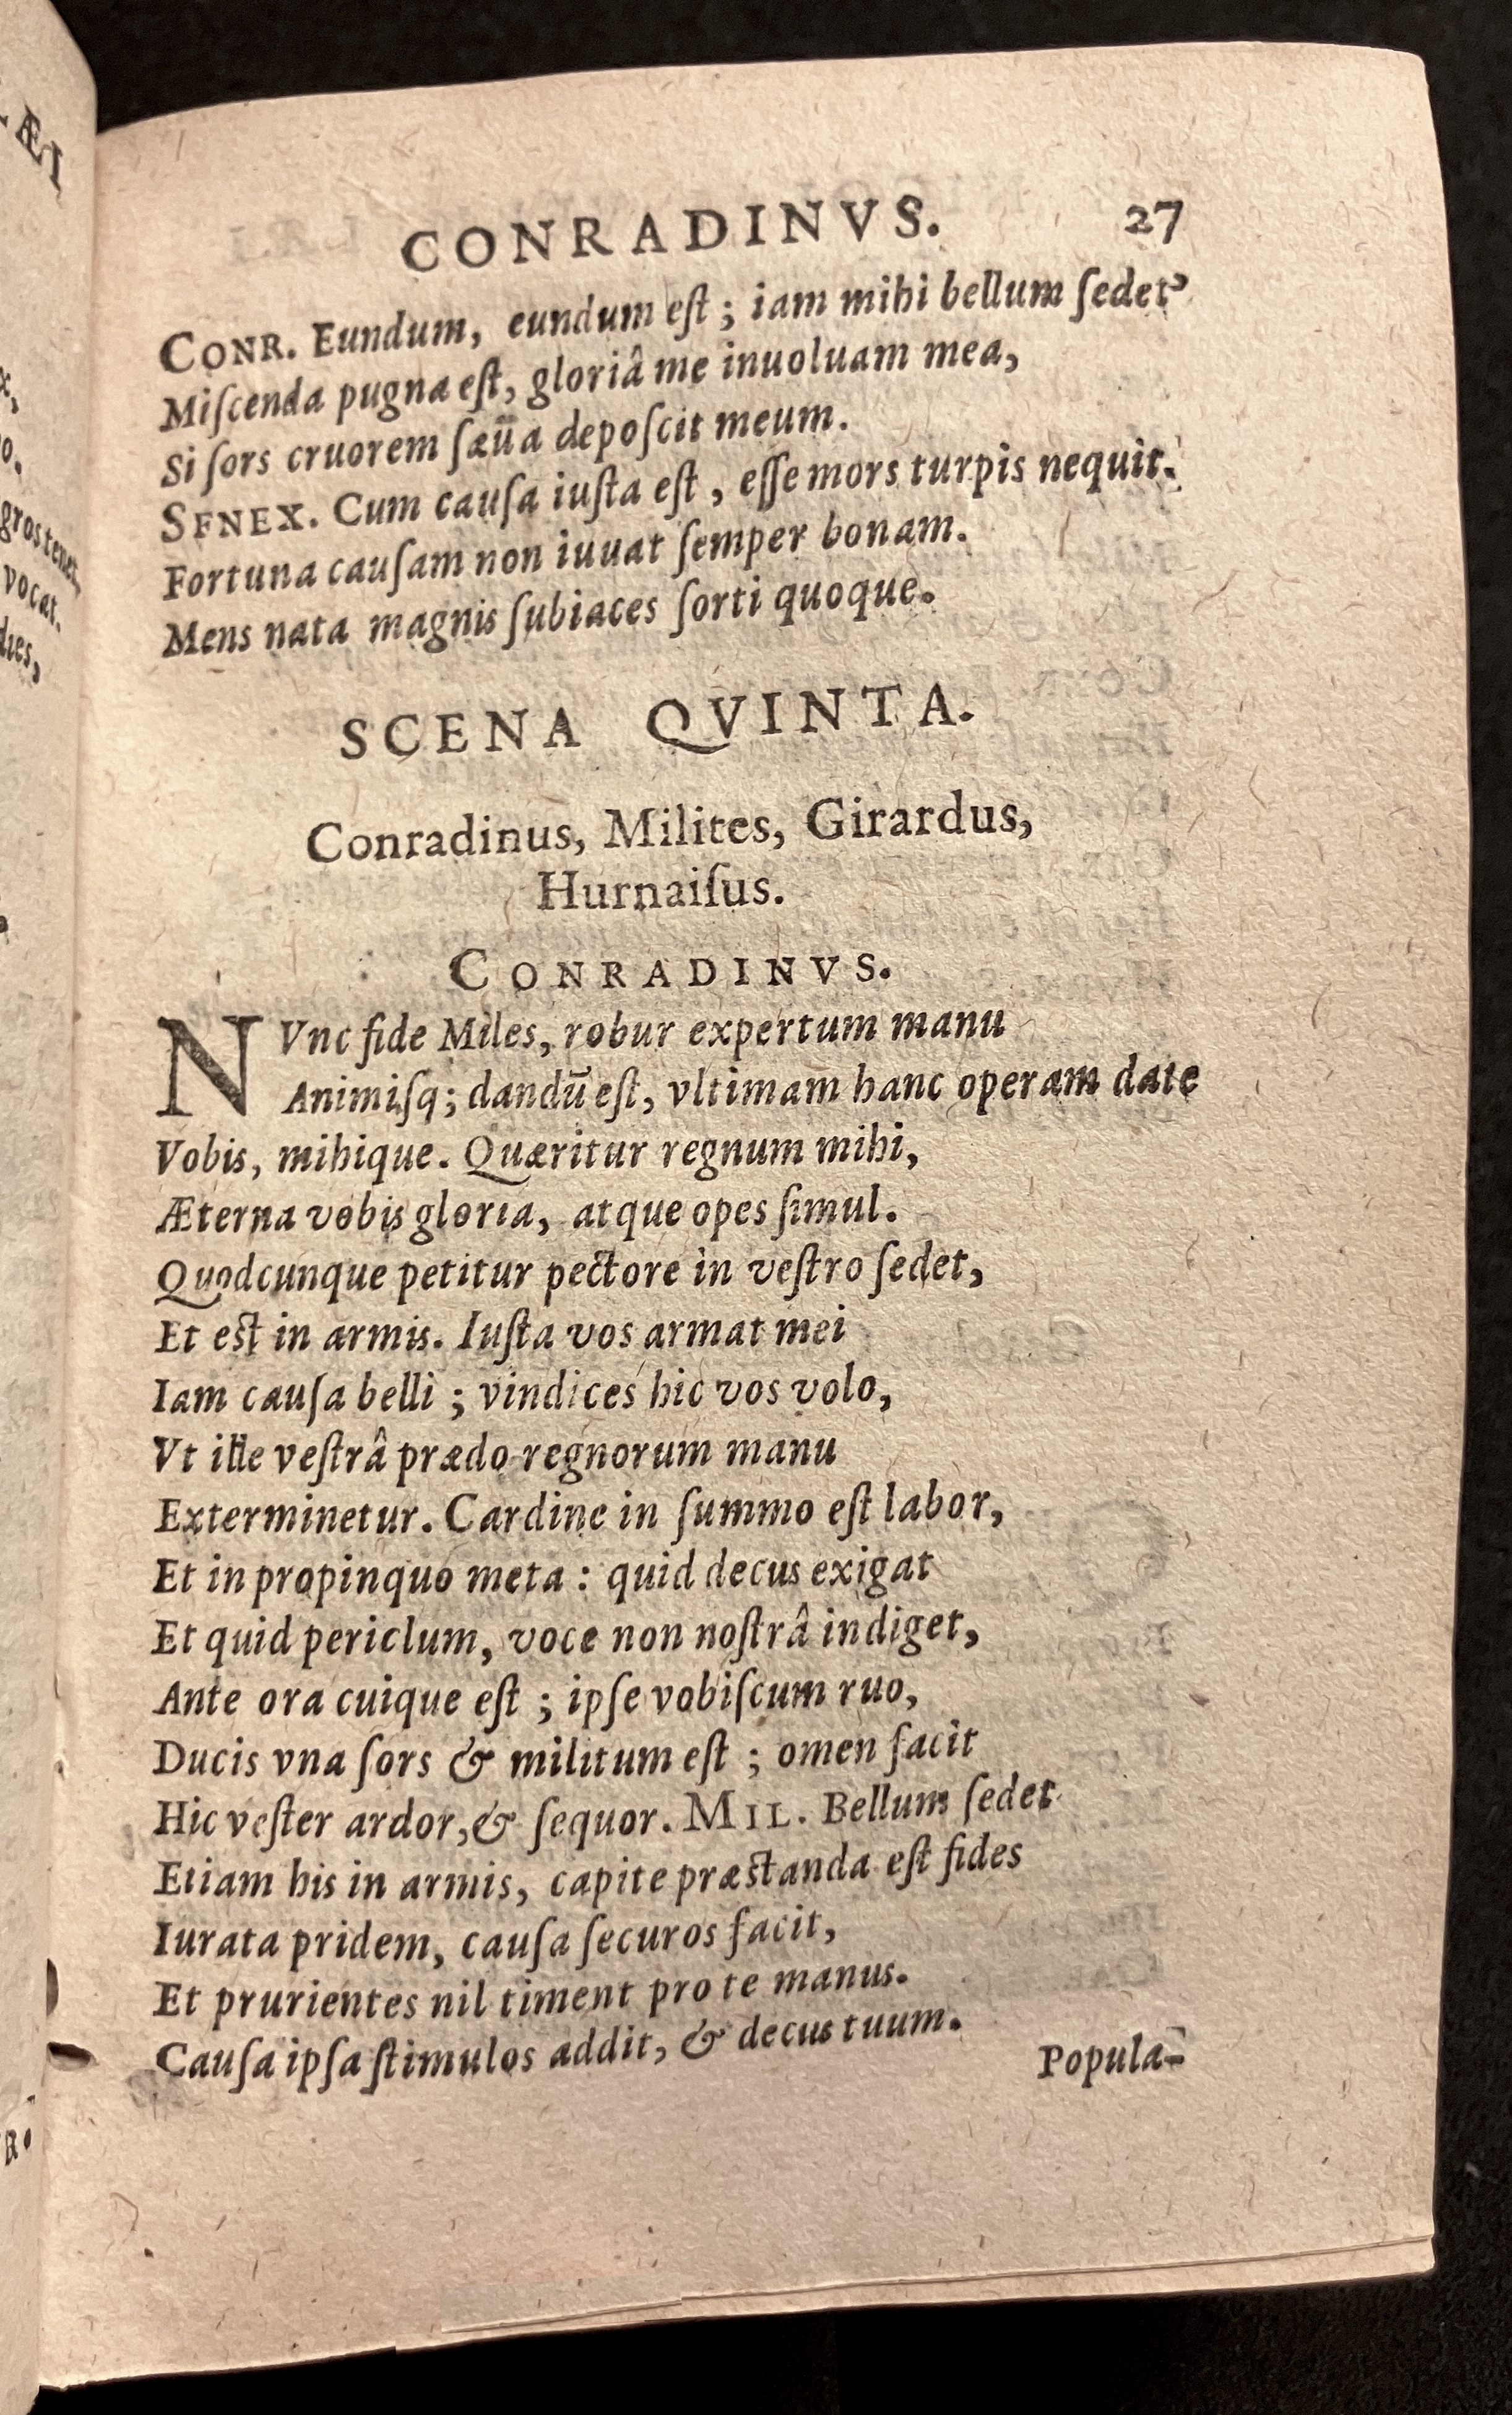 CONRADINVS. 27
CONR. Eundum, eundum eſt ; iam mihi bellum ſedet
Miſcenda pugna eſt, gloriâ me inuoluam mea,
Si ſors cruorem ſæũa depoſcit meum.
SFNEX. Cum cauſa iuſta eſt, eſſe mors turpis nequit.
Fortuna cauſam non iuuat ſemper bonam.
Mens nata magnis ſubiaces ſorti quoque.
SCENA QVINTA.
Conradinus, Milites, Girardus,
Hurnaiſus.
CONRADINVS.
NVnc fide Miles, robur expertum manu
Animiſq; dandū eſt, vltimam hanc operam date
Vobis, mihique. Quæritur regnum mihi,
Æterna vobis gloria, atque opes ſimul.
Quodcunque petitur pectore in veſtro ſedet,
Et eſt in armis. Iuſta vos armat mei
Iam cauſa belli ; vindices hic vos volo,
Vt ille veſtrâ prædo regnorum manu
Exterminetur. Cardine in ſummo eſt labor,
Et in propinquo meta : quid decus exigat
Et quid periclum, voce non noſtrâ indiget,
Ante ora cuique eſt ; ipſe vobiſcum ruo,
Ducis vna ſors & militum eſt ; omen facit
Hic veſter ardor, & ſequor. MIL. Bellum ſedet
Etiam his in armis, capite præſtanda eſt fides
Iurata pridem, cauſa ſecuros facit,
Et prurientes nil timent pro te manus.
Cauſa ipſa ſtimulos addit, & decus tuum.
Popula-